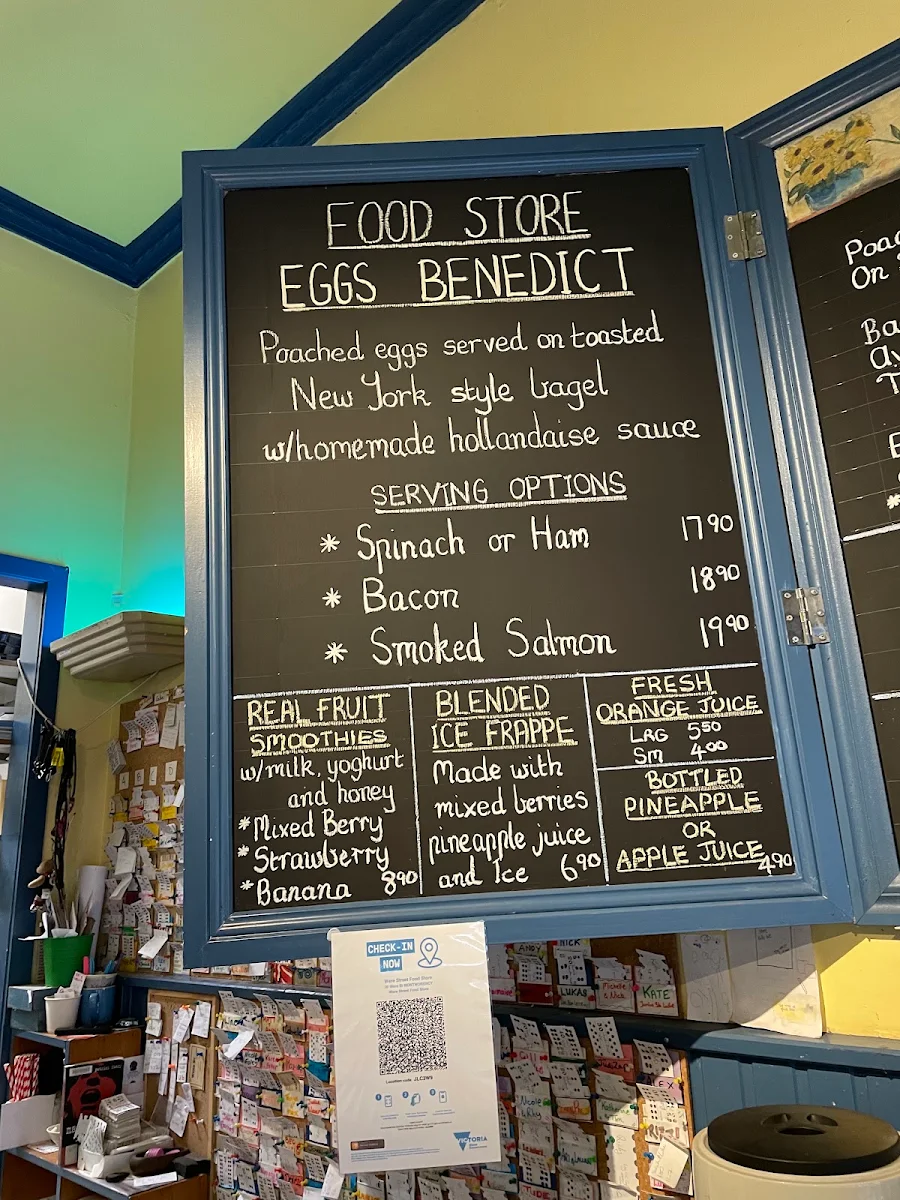 FOOD STORE
EGGS BENEDICT
Poached eggs served on toasted
New York style bagel
w/homemade hollandaise sauce
SERVING OPTIONS
* Spinach or Ham 17 90
* Bacon 18 90
* Smoked Salmon 19 90
REAL FRUIT
SMOOTHIES
w/milk, yoghurt
and honey
* Mixed Berry
* Strawberry
* Banana 8 90
BLENDED
ICE FRAPPE
Made with
mixed berries
pineapple juice
and Ice 6 90
FRESH
ORANGE JUICE
LRG 5 50
Sm 4 00
BOTTLED
PINEAPPLE
OR
APPLE JUICE 4 90
Poac
On
Ba
CHECK-IN
NOW
Location code JLC2W9
VICTORIA
NICK
LUKAS
KATE